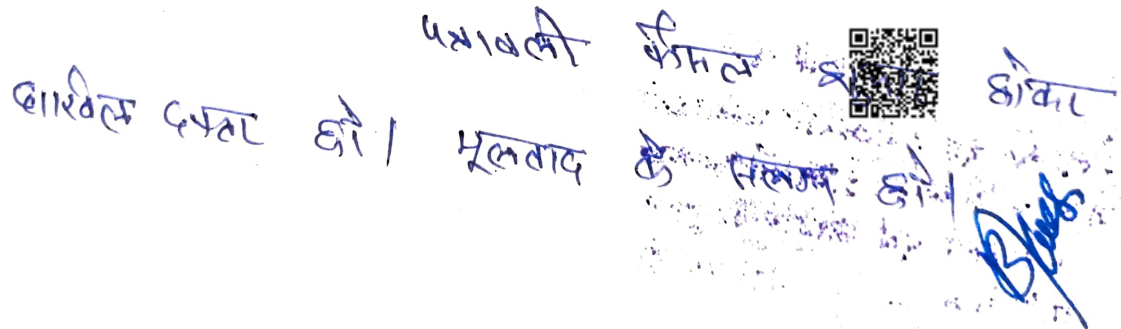 पत्रावली फैसल शुमार होकर
दाखिल दफ्तर हो। मूलवाद के संलग्न हो।